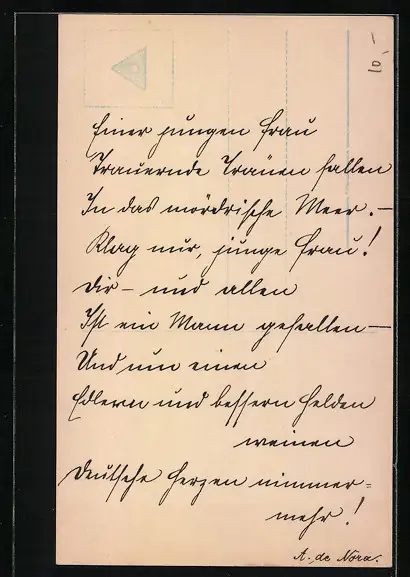 10,-
Einer jungen Frau
Trauernde Tränen fallen
In das mördrische Meer. –
Klag nur, junge Frau!
Dir – und allen
Ist ein Mann gefallen –
Und um einen
Edlern und bessern Helden
weinen
Deutsche Herzen nimmer=
mehr!
A. de Nora.